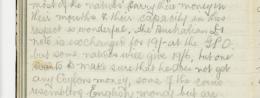 most of the natives carry their money in
their mouths & their capacity in this
respect is wonderful, the Australian £
note is exchanged for 19/- at the G.P.O.
but some natives give 19/6, but one
to make sure that he are not get
any Ceylon money, some of the coins
resembling English money but are